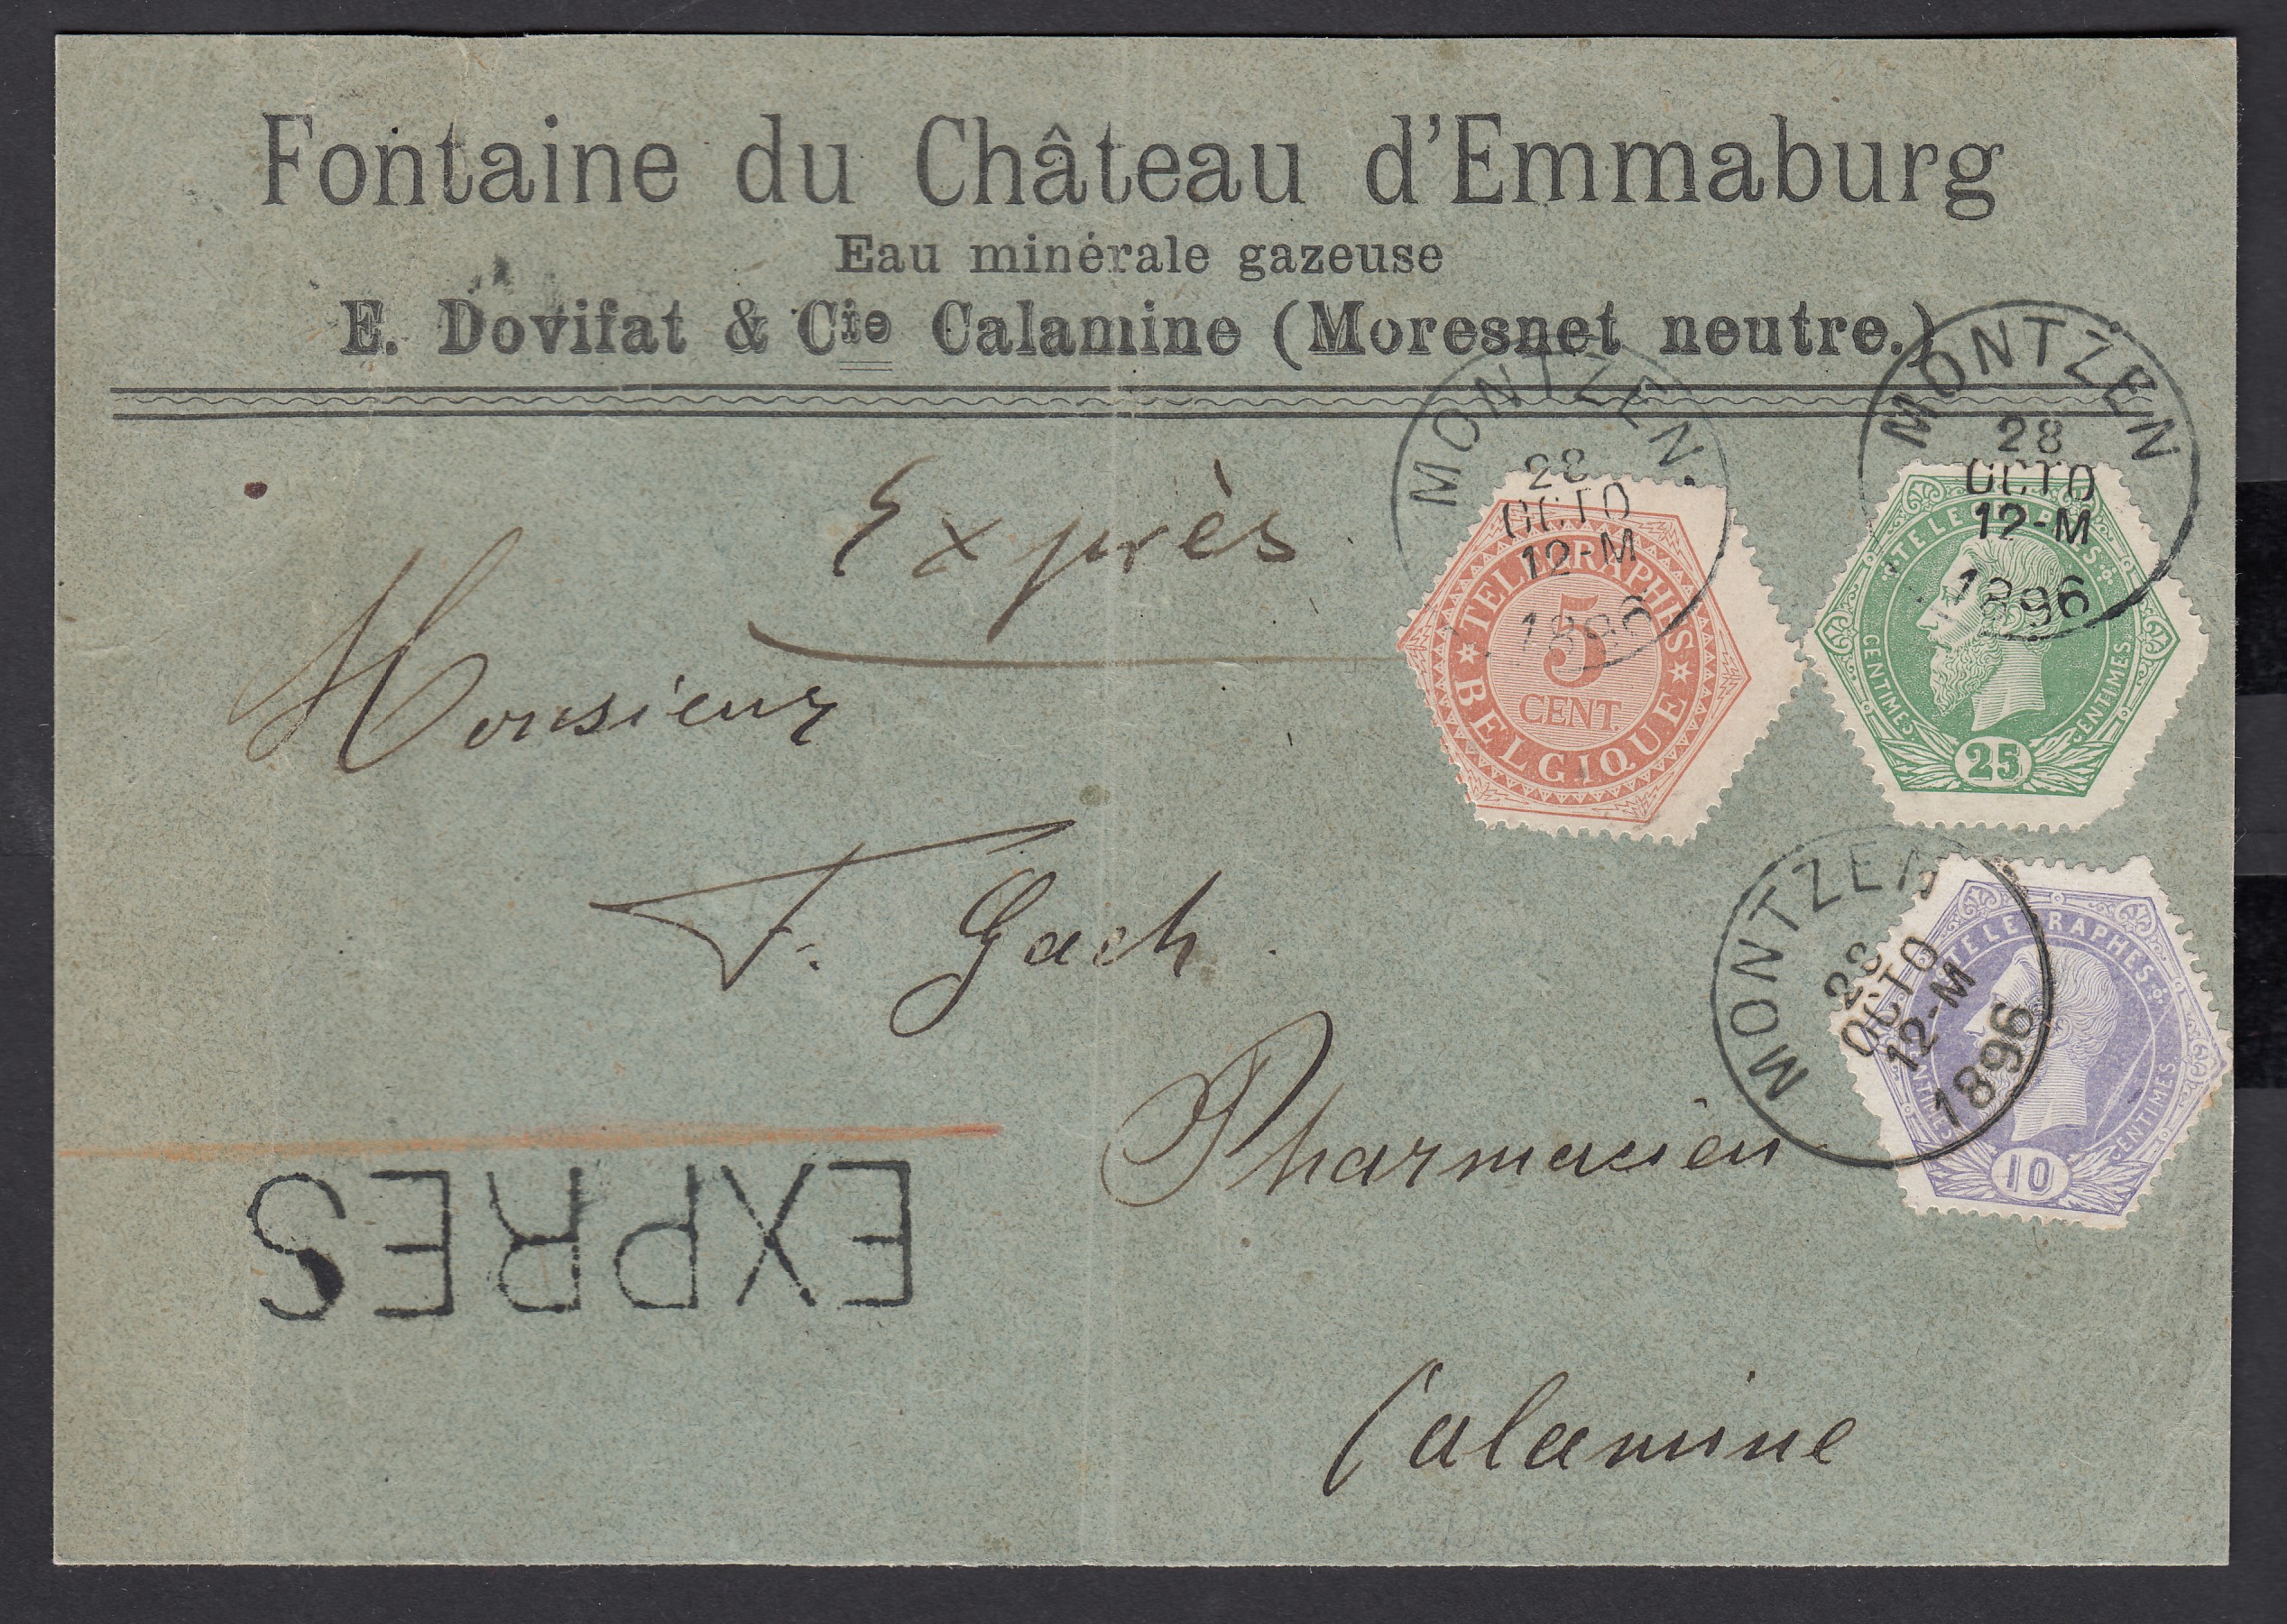 Fontaine du Château d'Emmaburg
Eau minérale gazeuse
E. Dovifat & Cie Calamine (Moresnet neutre.)
MONTZEN
28
OCTO
12-M
1896
MONTZEN
28
OCTO
12-M
1896
Exprès
TELEGRAPHES
5
CENT
BELGIQUE
TELEGRAPHES
CENTIMES
CENTIMES
25
Monsieur
F. Gach
MONTZEN
28
OCTO
12-M
1896
TELEGRAPHES
CENTIMES
CENTIMES
10
Pharmacien
EXPRES
Calamine